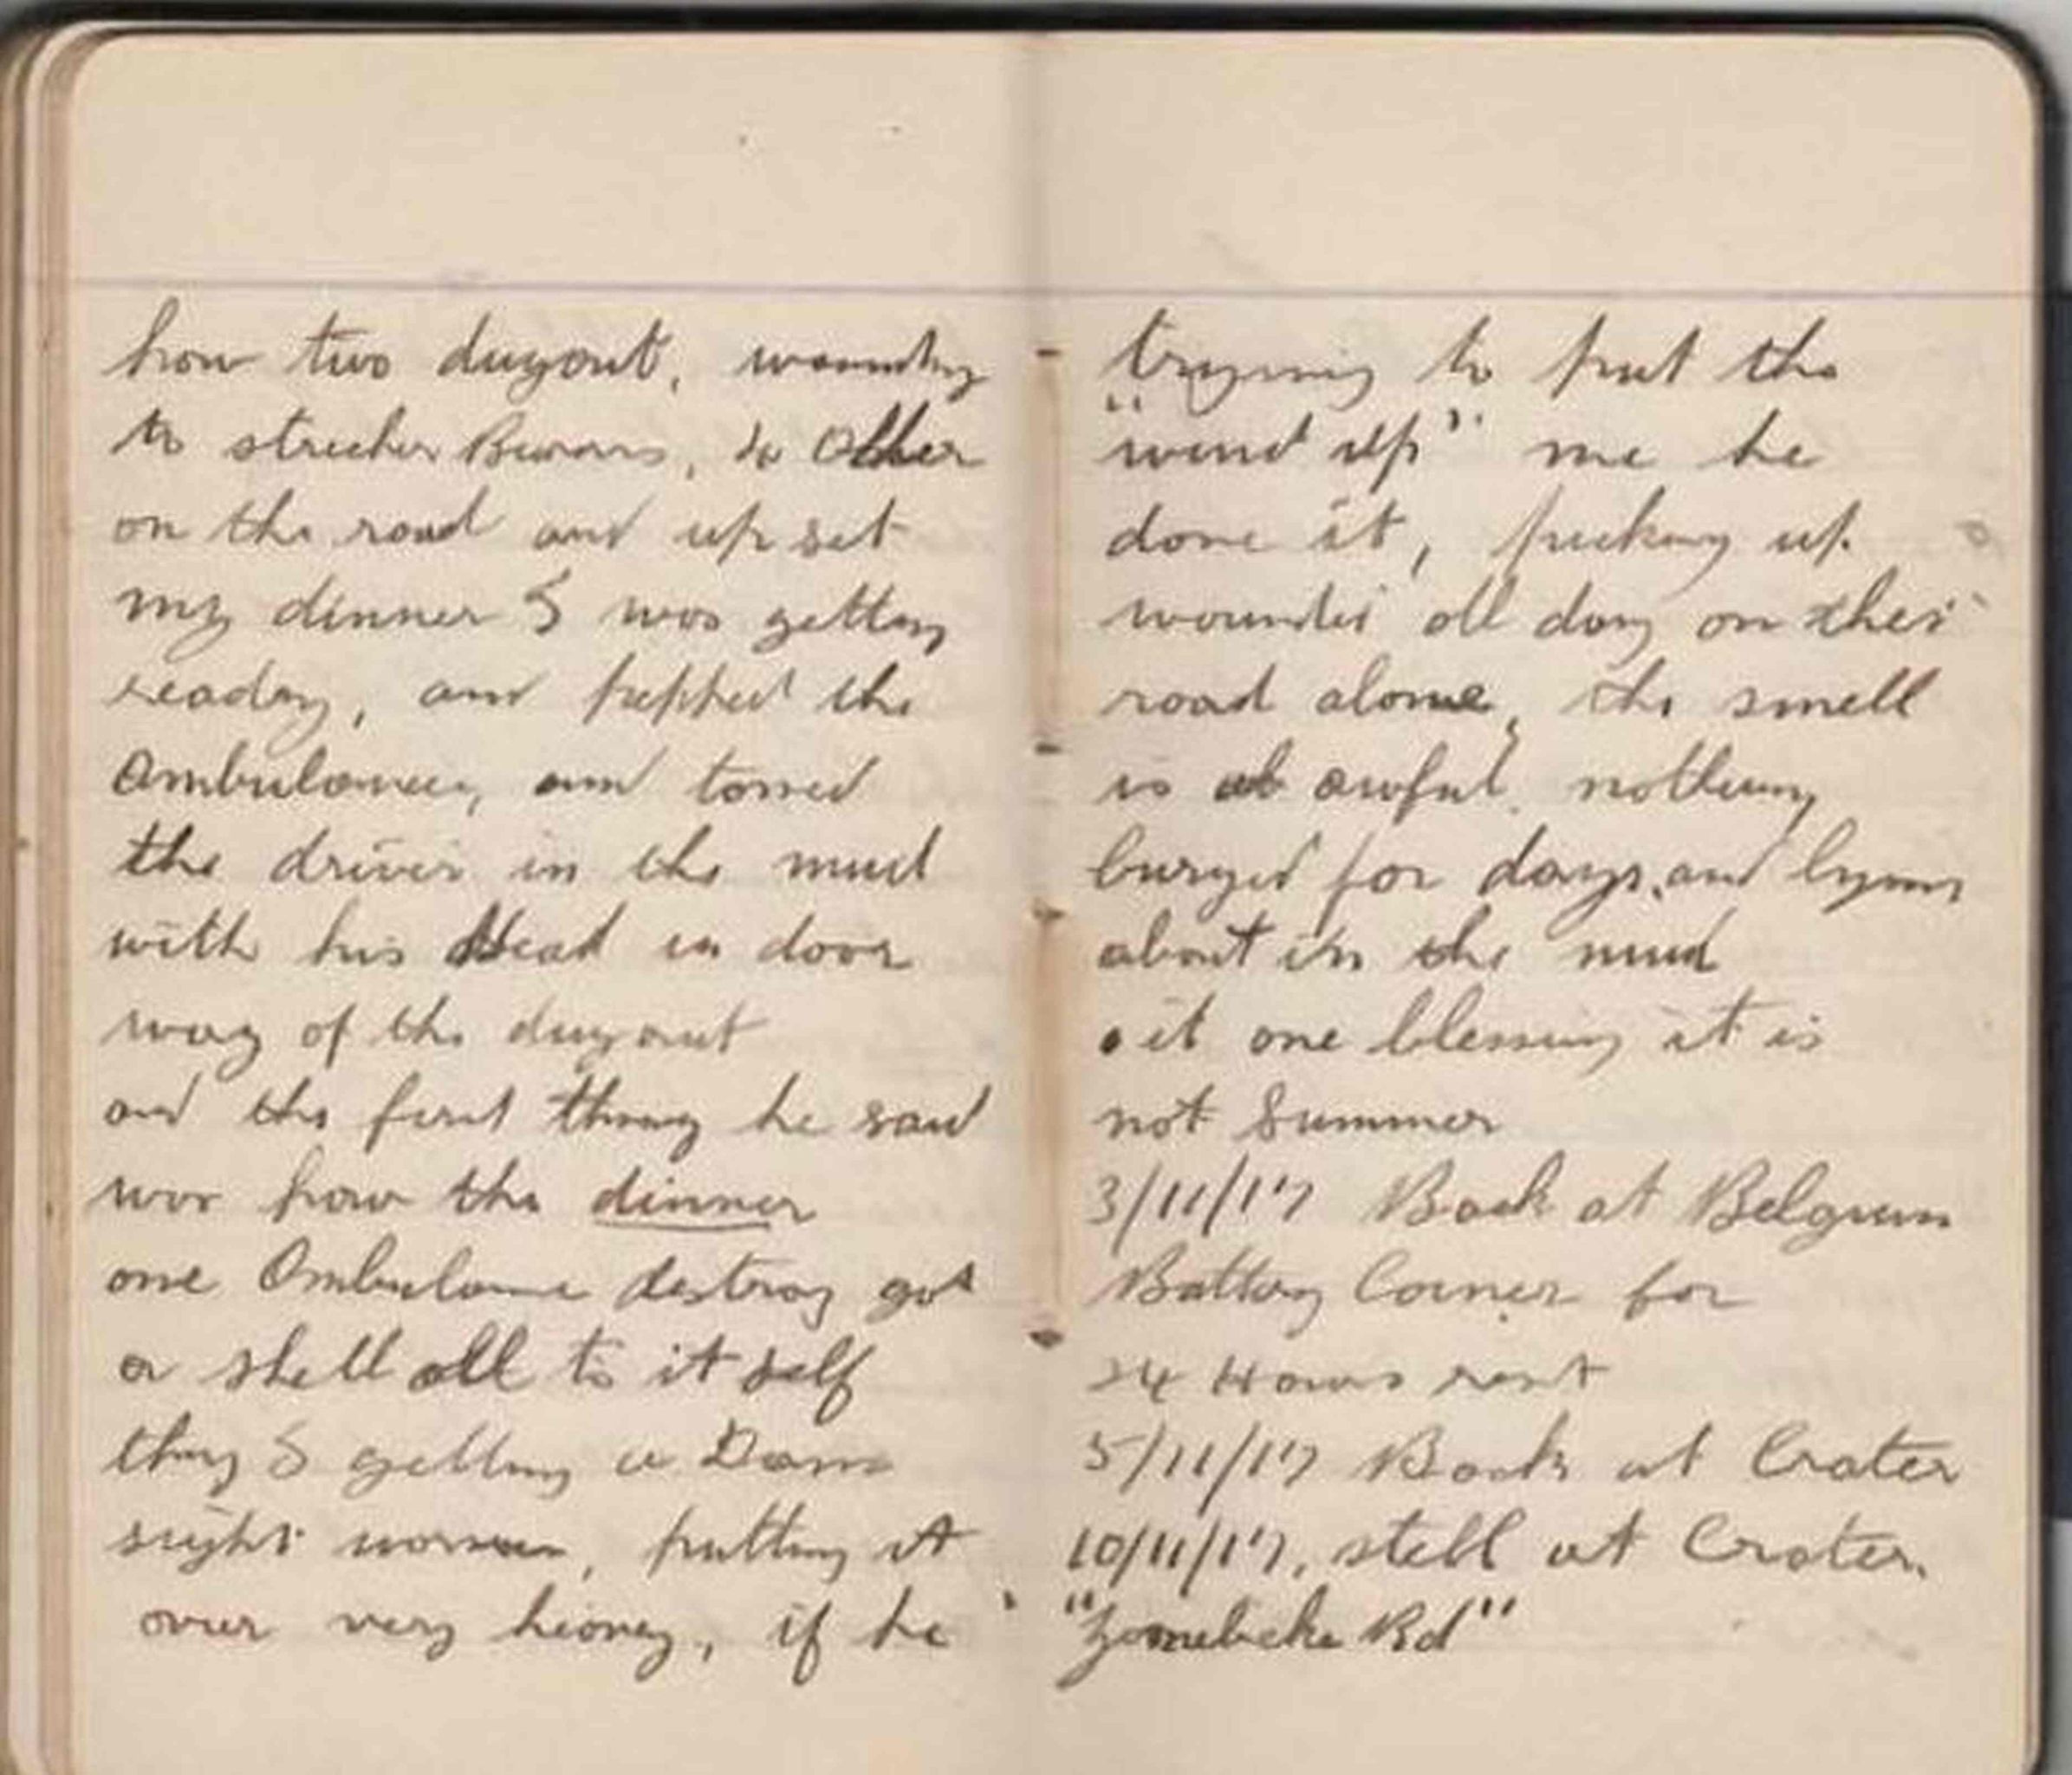 how two dugout, wounding
to strecher Burars, to Other
on the road and up set
my dinner I was getting
ready, and pepped the
Ambulance, and tossed
the driver in the mud
with his Head in door
way of the dugout
and the first thing he said
was how the dinner
one Ambulance destroy got
a shell all to it self
thing I getting a Dam
sight worse, putting it
over very heavey, if he
trying to put the
"wind up" me he
done it, picking up
wounded all day on ther
road alone, the smell
is awful. nothing
buryed for days, and lying
about in the mud
it one blessing it is
not Summer
3/11/17 Back at Belgium
Battery Corner for
24 Hours rest
5/11/17 Back at Crater
10/11/17, still at Crater.
"Zonebeke Rd"